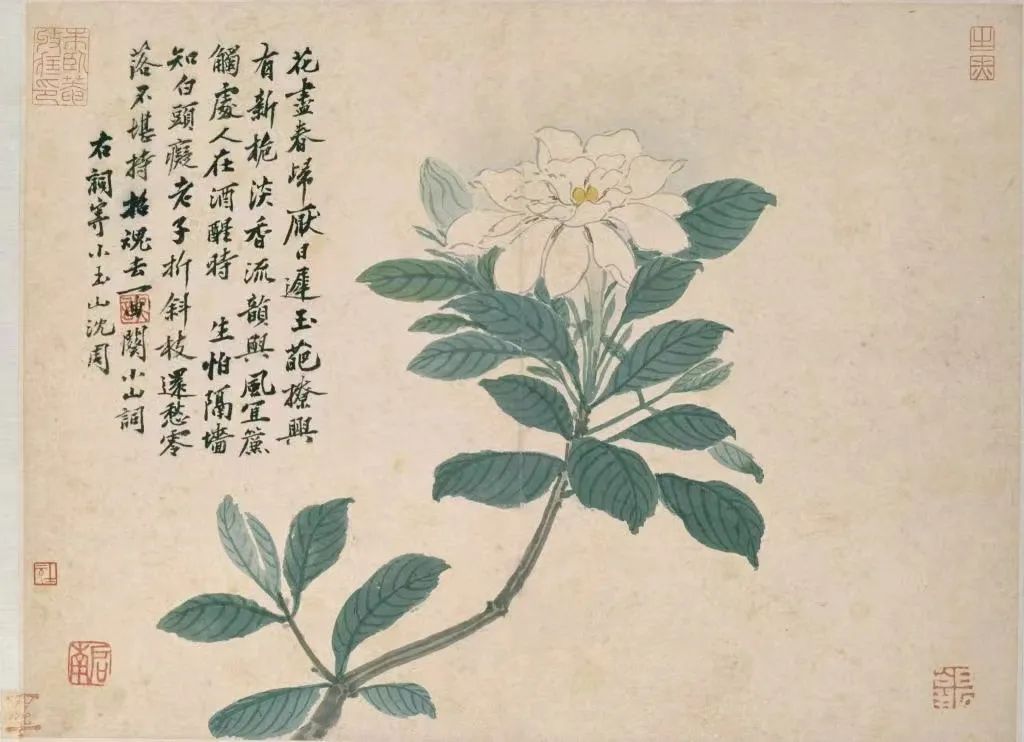 之赤
花盡春歸厭日遲玉葩撩興
有新梔淡香流韻與風宜簾
觸處人在酒醒時 生怕隔墻
知白頭癡老子折斜枝還愁零
落不堪持招魂去一曲闋小山詞
右詞寄小玉山沈周
朱臥菴收藏印
啟南